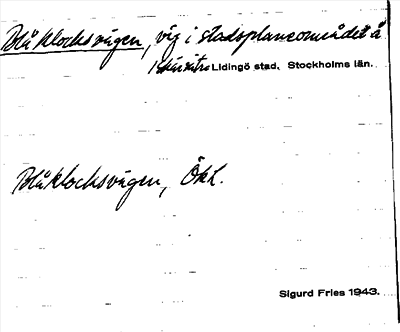 Blåklocksvägen, väg i stadsplaneområdet å
Skärsätra Lidingö stad. Stockholms län.
Blåklocksvägen, Ökl.
Sigurd Fries 1943.